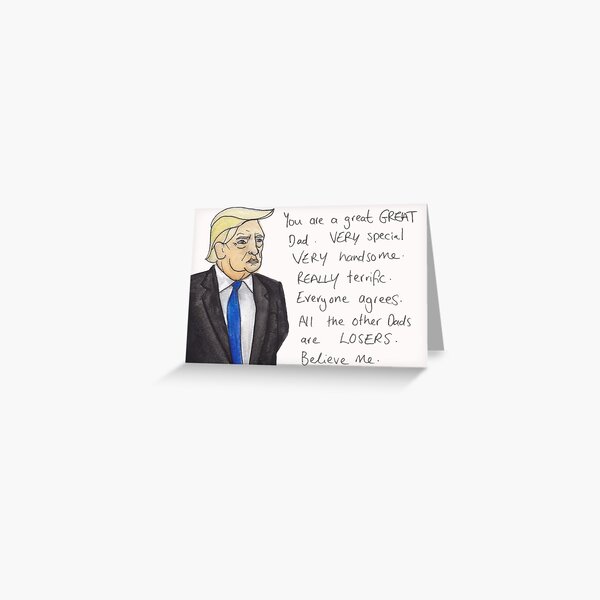 You are a great GREAT
Dad. VERY special
VERY handsome.
REALLY terrific.
Everyone agrees.
All the other Dads
are LOSERS.
Believe me.